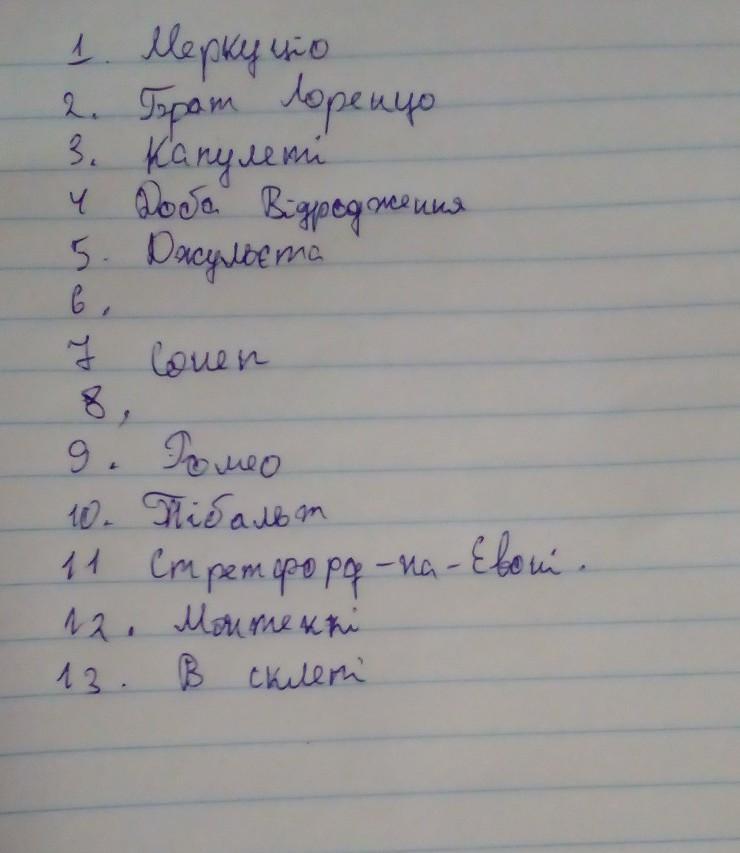 1. Меркуціо
2. Брат Лоренцо
3. Капулеті
4 Доба Відродження
5. Джульєта
6,
7 Сонет
8,
9. Ромео
10. Тібальт
11 Стретфорд-на-Евоні.
12. Монтеккі
13. В склепі